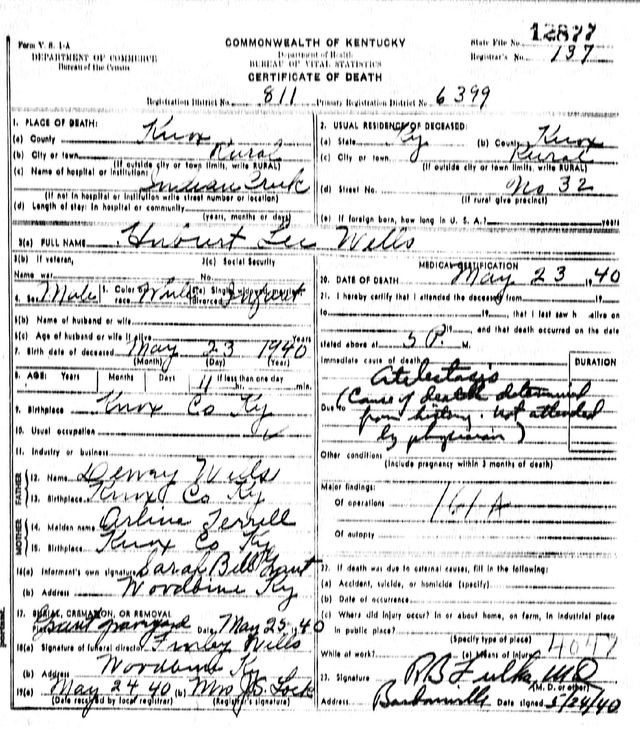 12877
Form V. S. 1-A
DEPARTMENT OF COMMERCE
Bureau of the Census
COMMONWEALTH OF KENTUCKY
Department of Health
BUREAU OF VITAL STATISTICS
CERTIFICATE OF DEATH
State File No.
Registrar's No. 137
Registration District No. 811 Primary Registration District No. 6399
1. PLACE OF DEATH:
(a) County Knox
(b) City or town Rural
(If outside city or town limits, write RURAL)
(c) Name of hospital or institution: Indian Creek
(If not in hospital or institution write street number or location)
(d) Length of stay: In hospital or community
(years, months or days)
2. USUAL RESIDENCE OF DECEASED:
(a) State Ky (b) County Knox
(c) City or town Rural
(If outside city or town limits, write RURAL)
(d) Street No. No 32
(If rural give precinct)
(e) If foreign born, how long in U. S. A.? years
3(a) FULL NAME Hubert Lee Wells
3(b) If veteran,
Name war
3(c) Social Security
No.
4. Sex Male 5. Color or race White 6(a) Single, widowed, divorced Infant
6(b) Name of husband or wife
6(c) Age of husband or wife if alive Years
7. Birth date of deceased May 23 1940
(Month) (Day) (Year)
8. AGE: Years Months Days 11 If less than one day min.
9. Birthplace Knox Co Ky
10. Usual occupation
11. Industry or business
FATHER
12. Name Dewey Wells
13. Birthplace Knox Co Ky
MOTHER
14. Maiden name Arlina Terrell
15. Birthplace Knox Co Ky
16(a) Informant's own signature Sarah Bell
(b) Address Woodbine Ky
17. BURIAL, CREMATION, OR REMOVAL
Place graveyard Date May 25, 1940
18(a) Signature of funeral director Finley Wells
(b) Address Woodbine Ky
19(a) May 24 40 (b) Mrs J.S. Lock
(Date received by local registrar) (Registrar's signature)
MEDICAL CERTIFICATION
20. DATE OF DEATH May 23, 1940
21. I hereby certify that I attended the deceased from 19
to 19 , that I last saw h alive on
19 , and that death occurred on the date
stated above at 5 P. M.
Immediate cause of death DURATION
Atelectasis
Due to (Cause of death determined
from history. Not attended
by physician)
Other conditions
(Include pregnancy within 3 months of death)
Major findings:
Of operations 161A
Of autopsy
22. If death was due to external causes, fill in the following:
(a) Accident, suicide, or homicide (specify)
(b) Date of occurrence
(c) Where did injury occur? In or about home, on farm, in industrial place
in public place?
(Specify type of place) 4047
While at work? (e) Means of injury
23. Signature RB Fulks, MD
(M. D. or other)
Address Barbourville Date signed 5/24/40